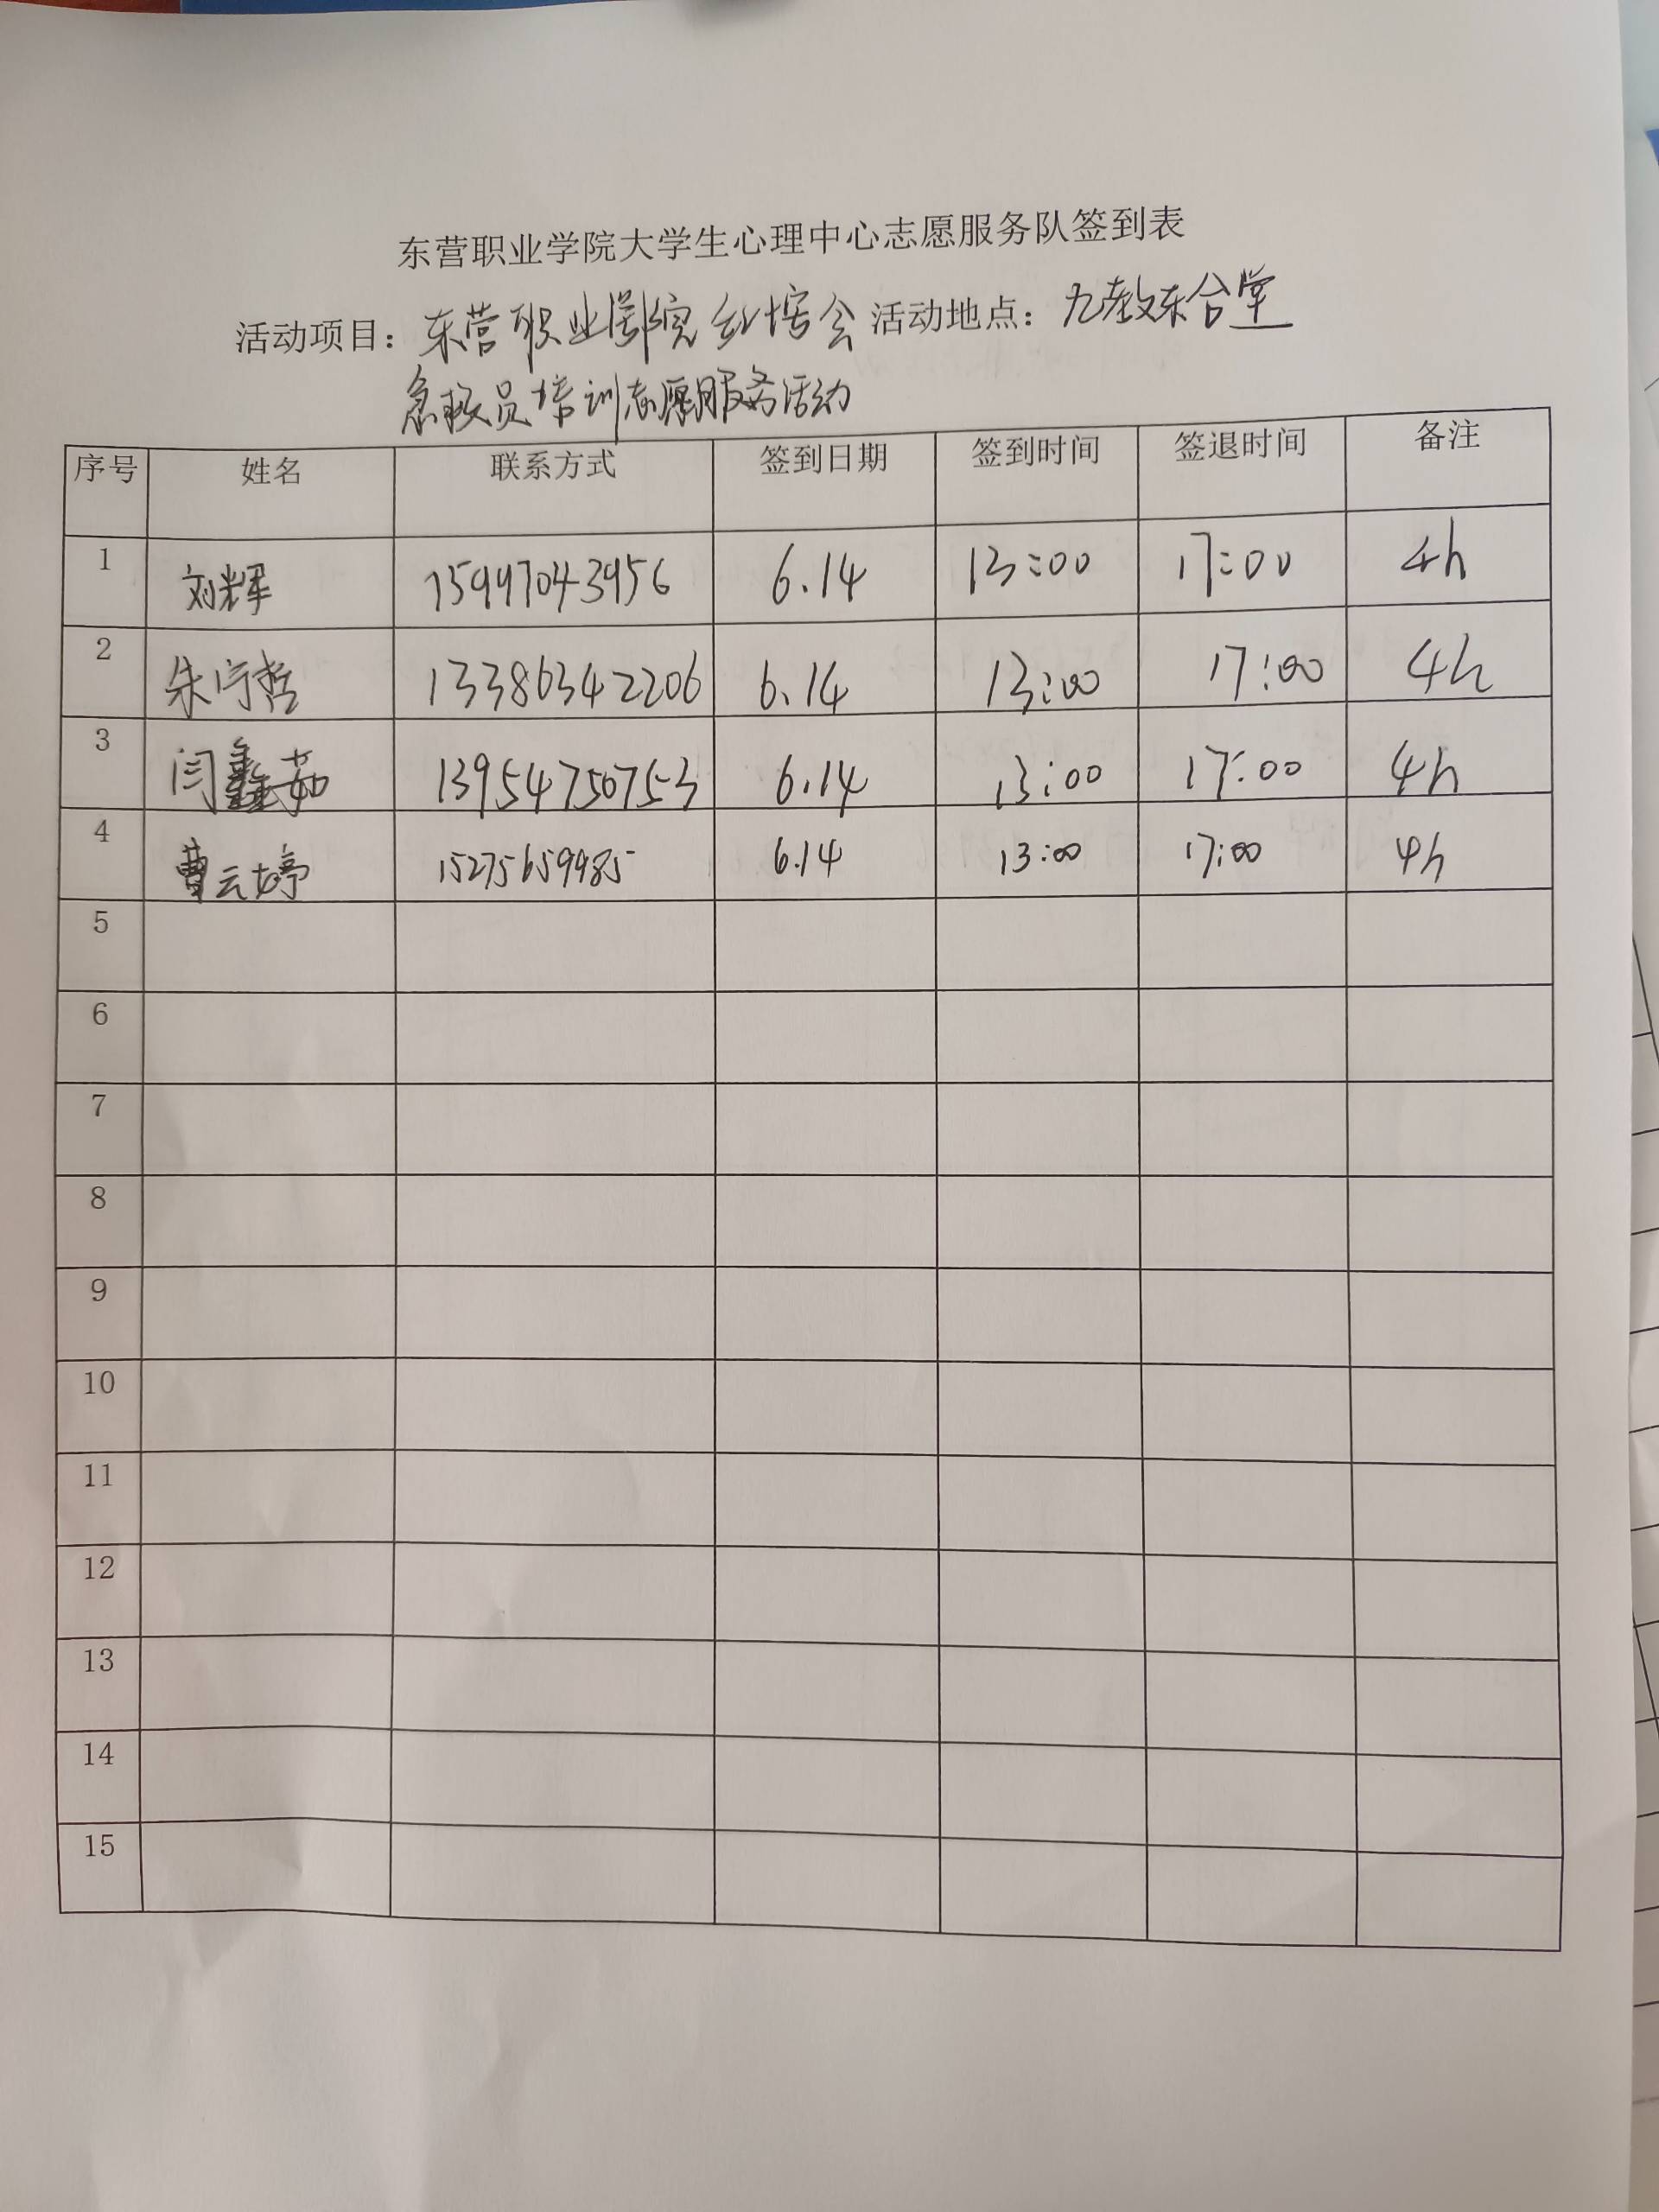 东营职业学院大学生心理中心志愿服务队签到表
活动项目：东营职业学院红十字会 活动地点：九教东合堂
急救员培训志愿服务活动
序号 姓名 联系方式 签到日期 签到时间 签退时间 备注
1 刘辉 15997043956 6.14 13:00 17:00 4h
2 朱宁哲 13386342206 6.14 13:00 17:00 4h
3 闫鑫茹 13954750753 6.14 13:00 17:00 4h
4 曹云婷 15275659985 6.14 13:00 17:00 4h
5
6
7
8
9
10
11
12
13
14
15